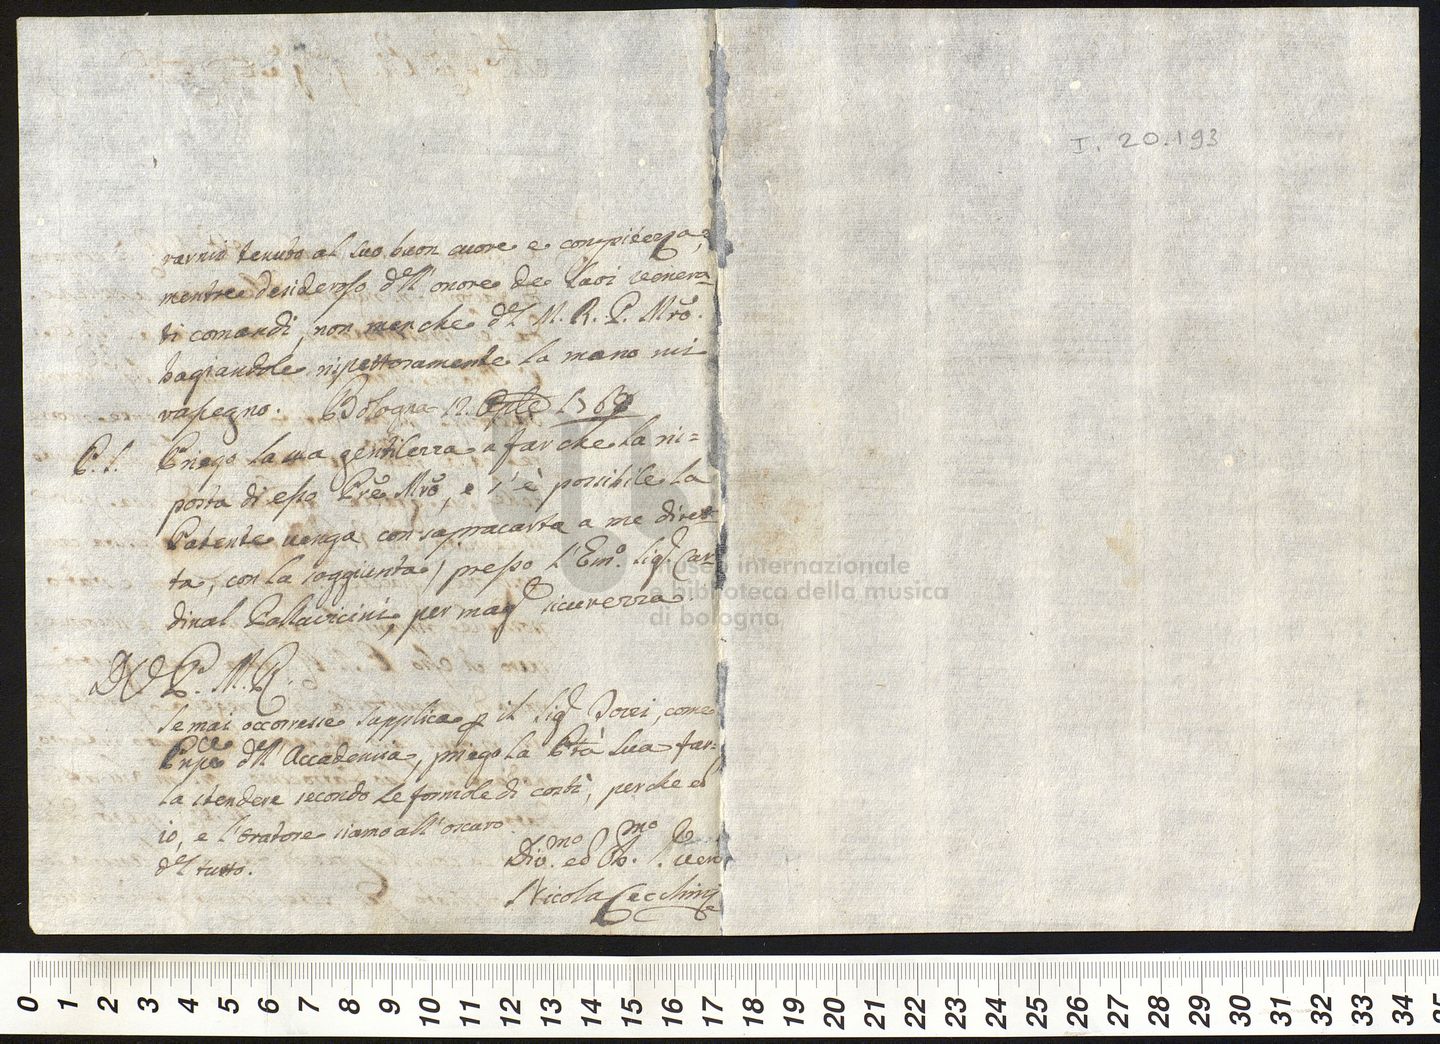 rarmi tenuto al suo buon cuore e compitezza,
mentre desideroso dell' onore de suoi venera-
ti comandi, non men che del M. R. P. Mro.
baciandole rispettosamente la mano mi
rassegno. Bologna 12. Aple 1769
P. S. Priego la sua gentilezza a far che la ri=
posta di esso Pre Mro, e s'è possibile la
Patente venga con sopracarta a me diret-
ta, con la soggiunta, presso l'Emo. Sigr Car-
dinal Pallavicini, per magr sicurezza
D V. P. M. R.
Se mai occorresse supplica p il Sigr Dorei, come
Prpe dell' Accademia, priego la Prtà Sua far-
la stendere secondo le formole di costì, perche ed
io, e l'oratore siamo all' oscuro
del tutto.
Div.mo ed Ob.mo S. vero
Nicola Cecchini
I. 20.193
museo internazionale
e biblioteca della musica
di bologna
0 1 2 3 4 5 6 7 8 9 10 11 12 13 14 15 16 17 18 19 20 21 22 23 24 25 26 27 28 29 30 31 32 33 34 35